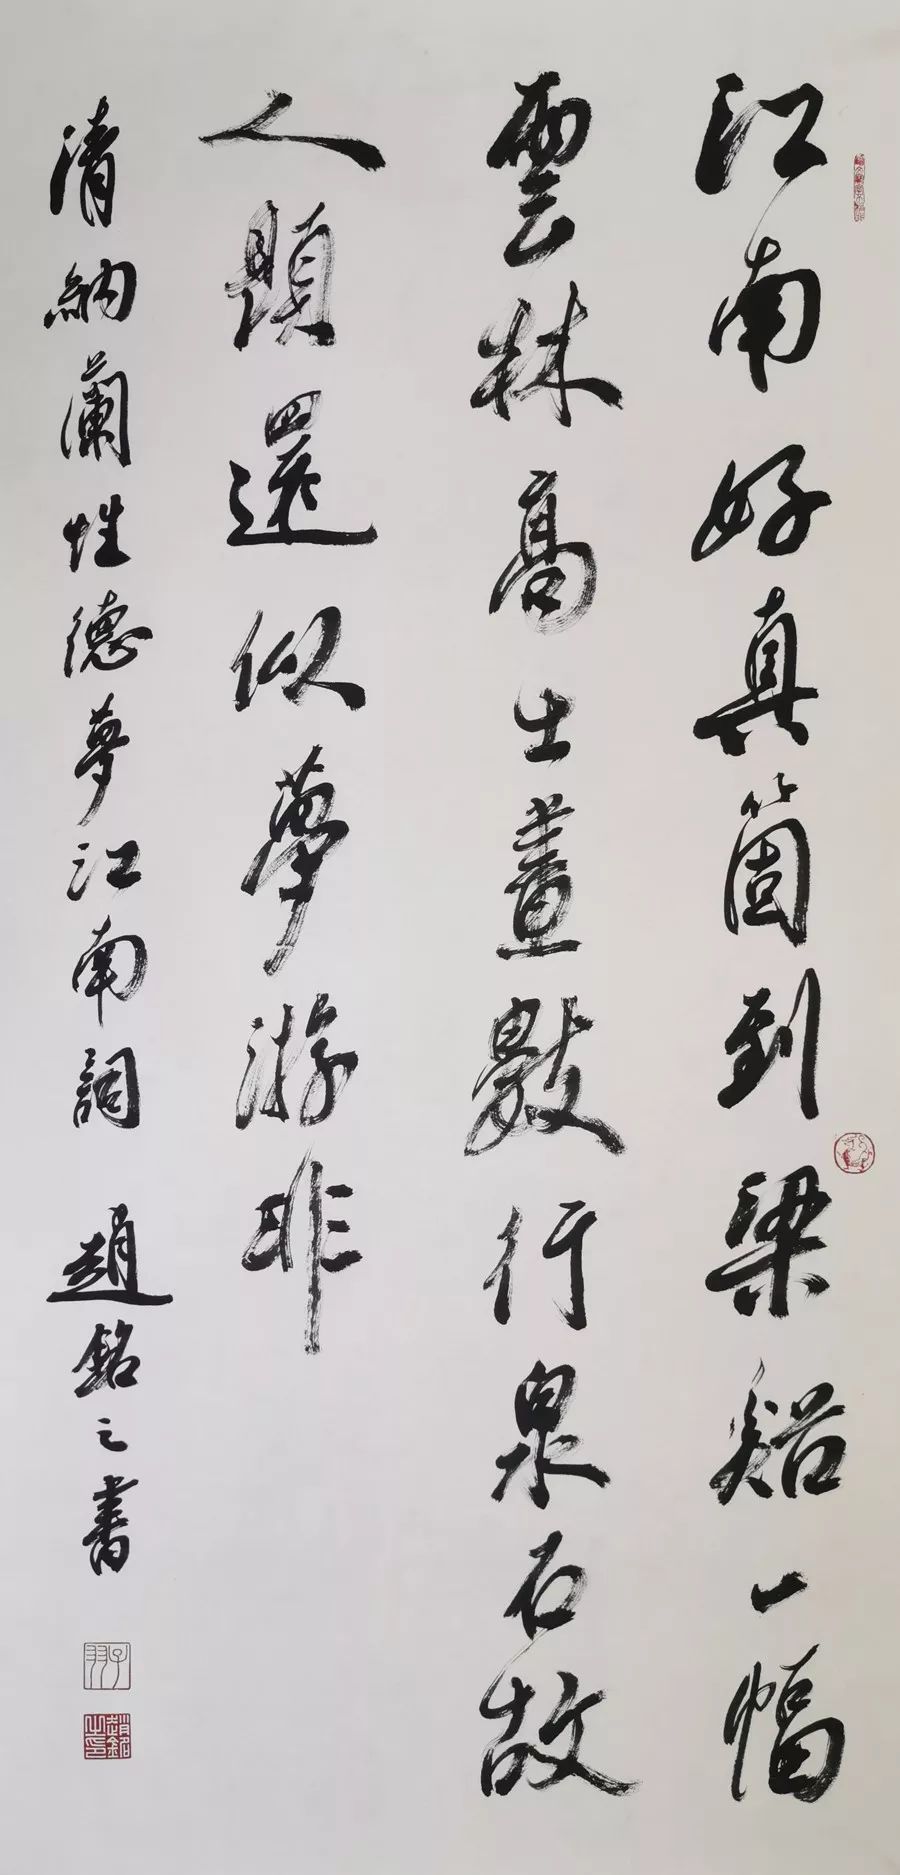 江南好真箇到梁谿一幅
雲林高士畫數行泉石故
人題還似夢游非
清納蘭性德夢江南詞 趙銘之書